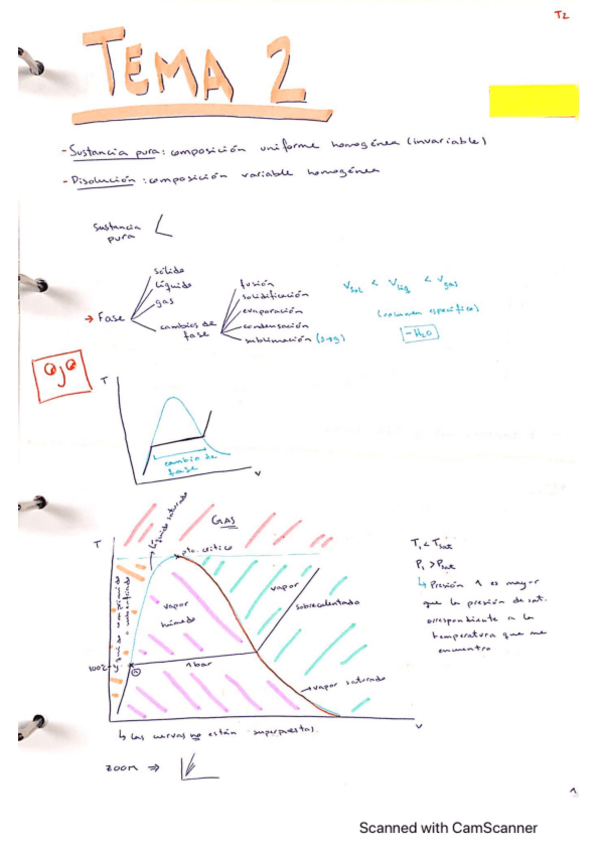 T2
TEMA 2
- Sustancia pura: composición uniforme homogénea (invariable)
- Disolución: composición variable homogénea
Sustancia pura
→ Fase
sólido
líquido
gas
cambios de fase
fusión
solidificación
evaporación
condensación
sublimación (s→g)
Vsol < Vliq < Vgas
(volumen específico)
- H2O
Ojo
T
cambio de fase
v
GAS
T
líquido saturado
pto. crítico
líquido comprimido o subenfriado
vapor húmedo
vapor sobrecalentado
100º
1 bar
vapor saturado
v
T1 < Tsat
P1 > Psat
↳ Presión 1 es mayor
que la presión de sat.
correspondiente a la
temperatura que me
encuentro
↳ las curvas no están superpuestas.
ZOOM ⇒
1
Scanned with CamScanner